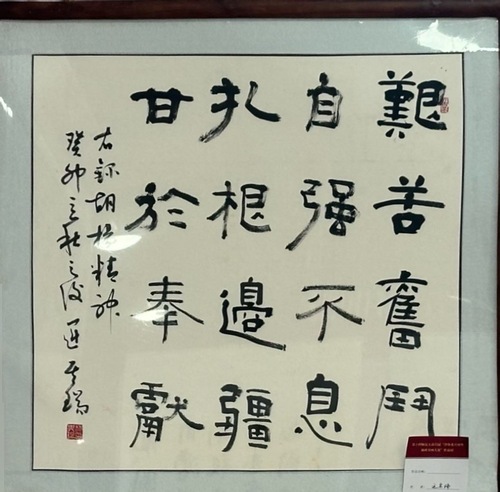 艱苦奮鬥
自强不息
扎根邊疆
甘於奉獻
右錄胡楊精神
癸卯立秋之後